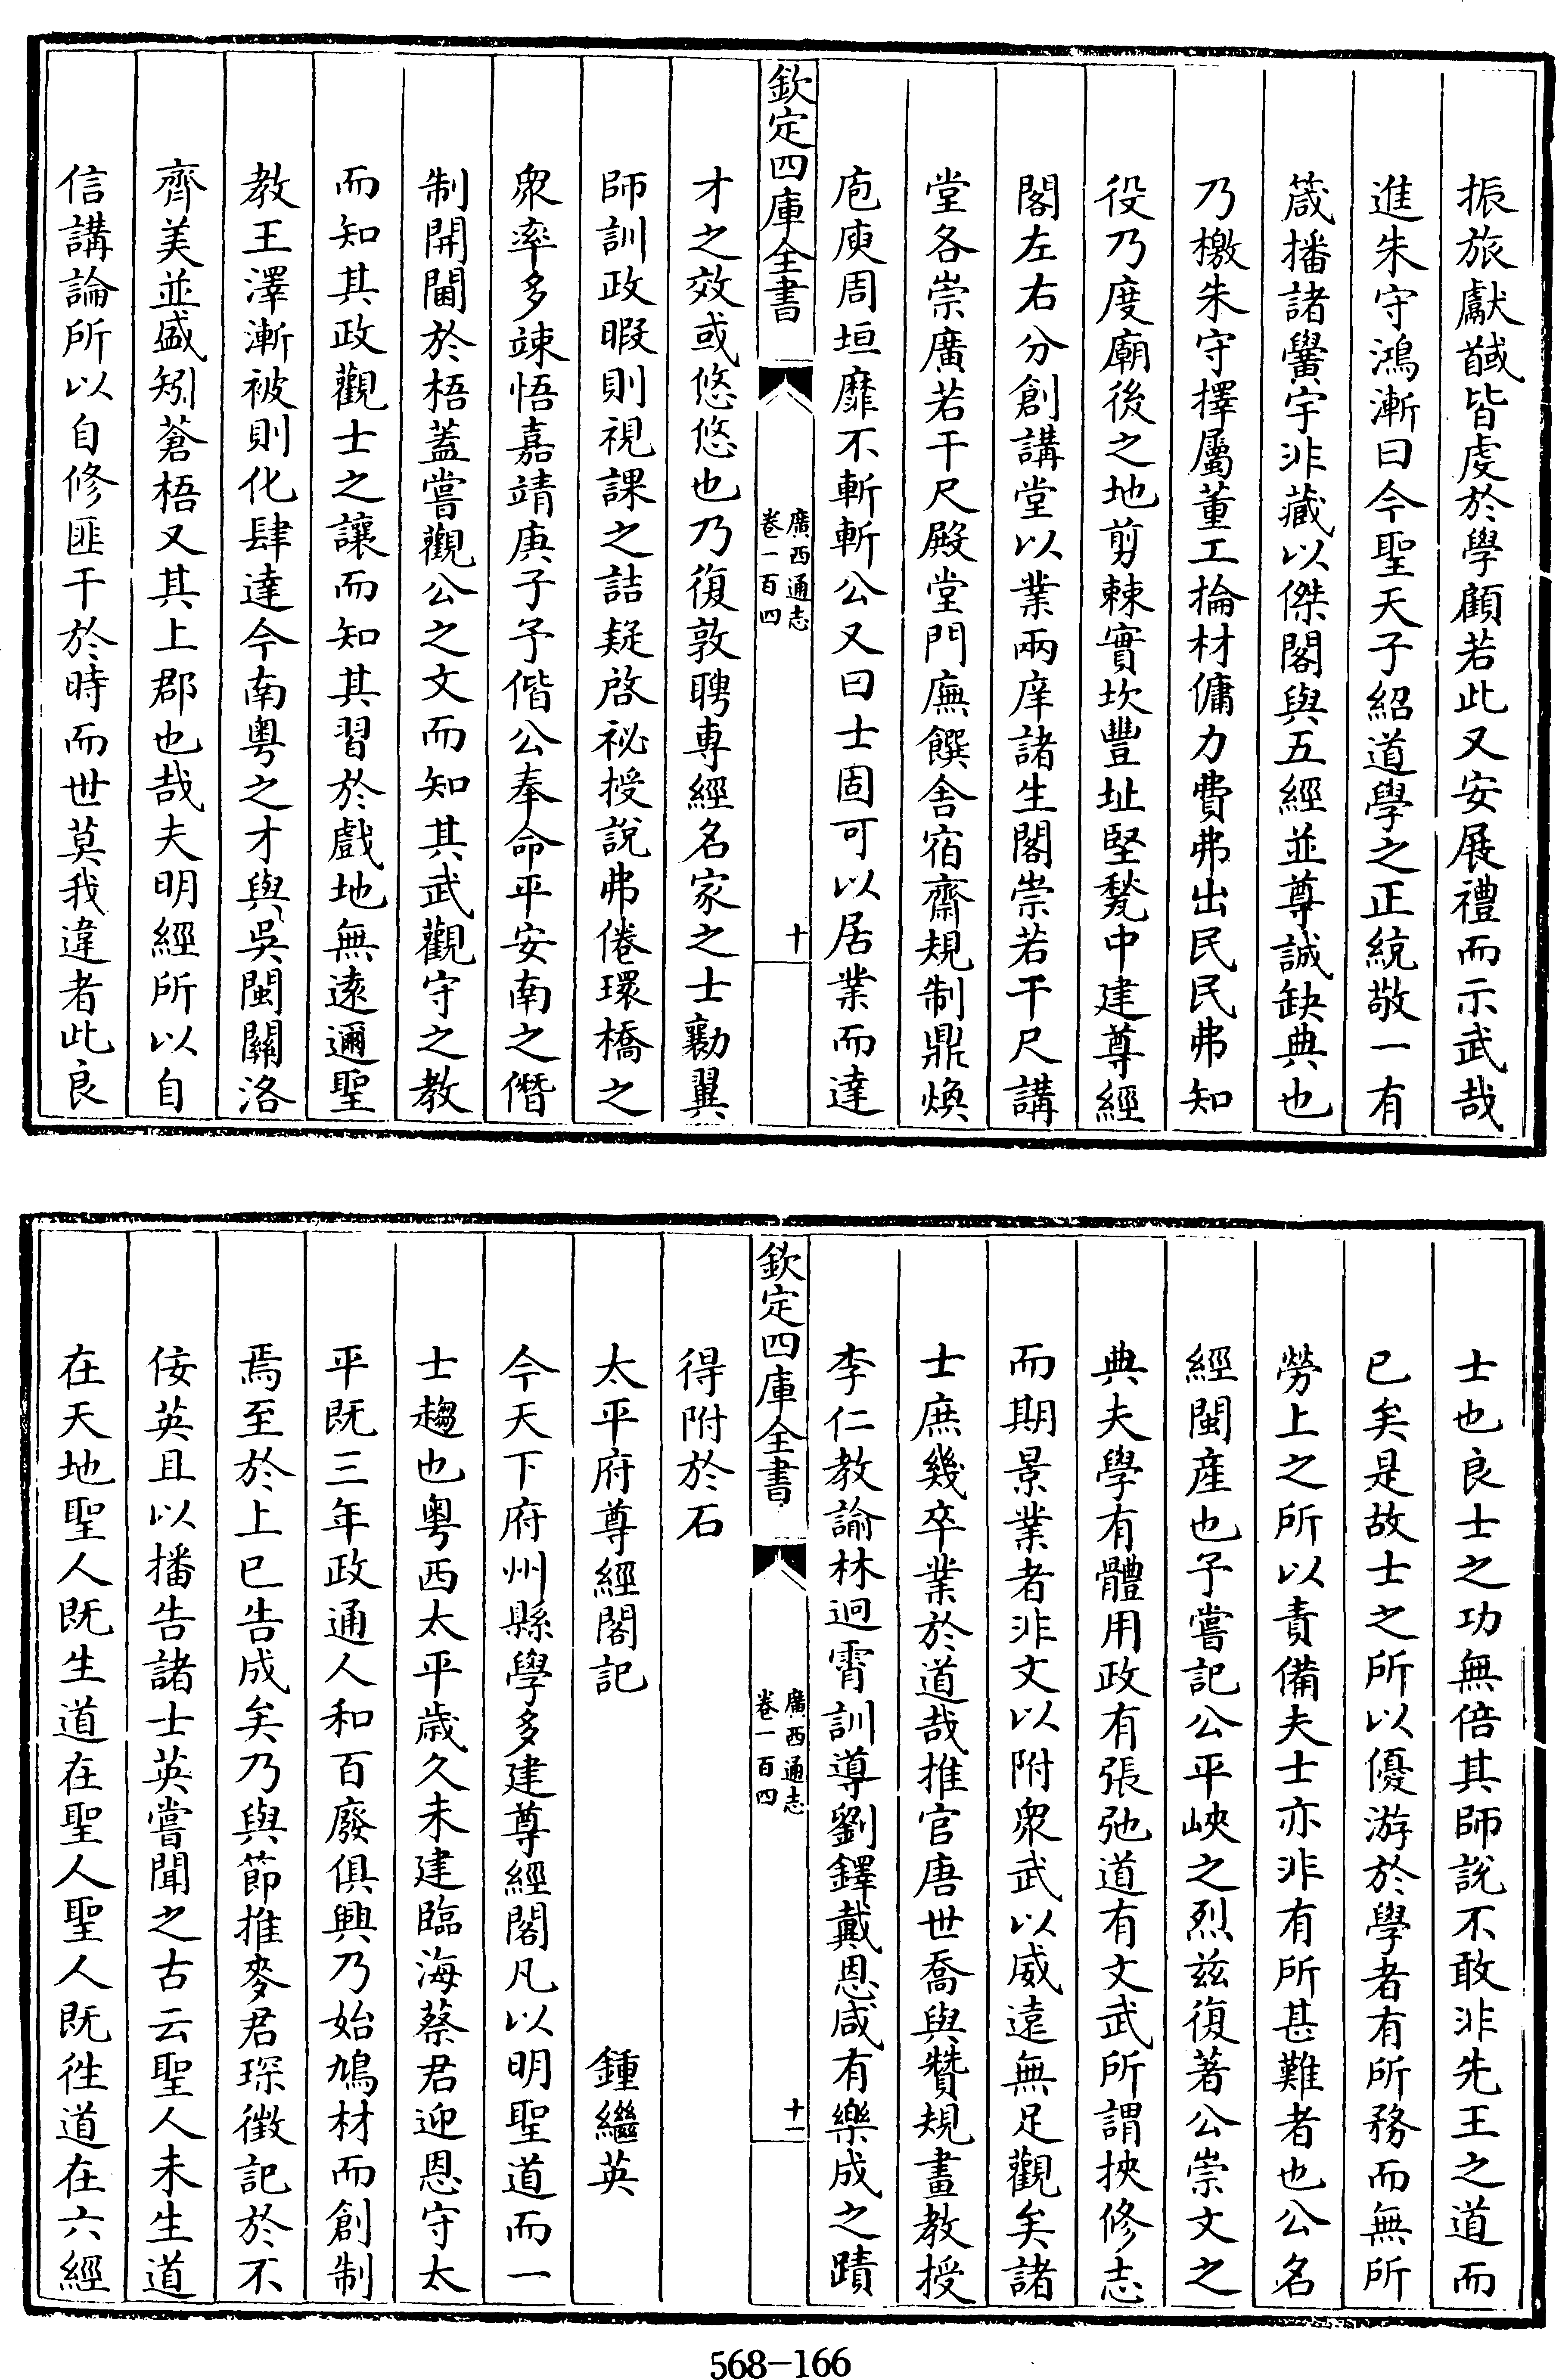 振旅獻馘皆虔於學顧若此又安展禮而示武哉
進朱守鴻漸曰今聖天子紹道學之正統敬一有
箴播諸黌宇非藏以傑閣與五經並尊誠缺典也
乃檄朱守擇屬董工掄材傭力費弗出民民弗知
役乃度廟後之地剪棘實坎豐址堅甃中建尊經
閣左右分創講堂以業兩庠諸生閣崇若干尺講
堂各崇廣若干尺殿堂門廡饌舍宿齋規制鼎煥
庖庾周垣靡不斬斬公又曰士固可以居業而達
欽定四庫全書
廣西通志
卷一百四
十
才之效或悠悠也乃復敦聘専經名家之士勷翼
師訓政暇則視課之詰疑啓祕授說弗倦環橋之
衆率多竦悟嘉靖庚子予偕公奉命平安南之僭
制開閫於梧蓋嘗觀公之文而知其武觀守之教
而知其政觀士之讓而知其習於戲地無遠邇聖
教王澤漸被則化肆達今南粤之才與吳閩關洛
齊美並盛矧蒼梧又其上郡也哉夫明經所以自
信講論所以自修匪干於時而世莫我違者此良
士也良士之功無倍其師說不敢非先王之道而
已矣是故士之所以優游於學者有所務而無所
勞上之所以責備夫士亦非有所甚難者也公名
經閩産也予嘗記公平峽之烈兹復著公崇文之
典夫學有體用政有張弛道有文武所謂挾修志
而期景業者非文以附衆武以威遠無足觀矣諸
士庶幾卒業於道哉推官唐世喬與贊規畫教授
李仁教諭林迥霄訓導劉鐸戴恩咸有樂成之蹟
欽定四庫全書
廣西通志
卷一百四
十一
得附於石
太平府尊經閣記 鍾繼英
今天下府州縣學多建尊經閣凡以明聖道而一
士趨也粤西太平歳久未建臨海蔡君迎恩守太
平既三年政通人和百廢俱興乃始鳩材而創制
焉至於上已告成矣乃與節推麥君琛徵記於不
佞英且以播告諸士英嘗聞之古云聖人未生道
在天地聖人既生道在聖人聖人既徃道在六經
568-166